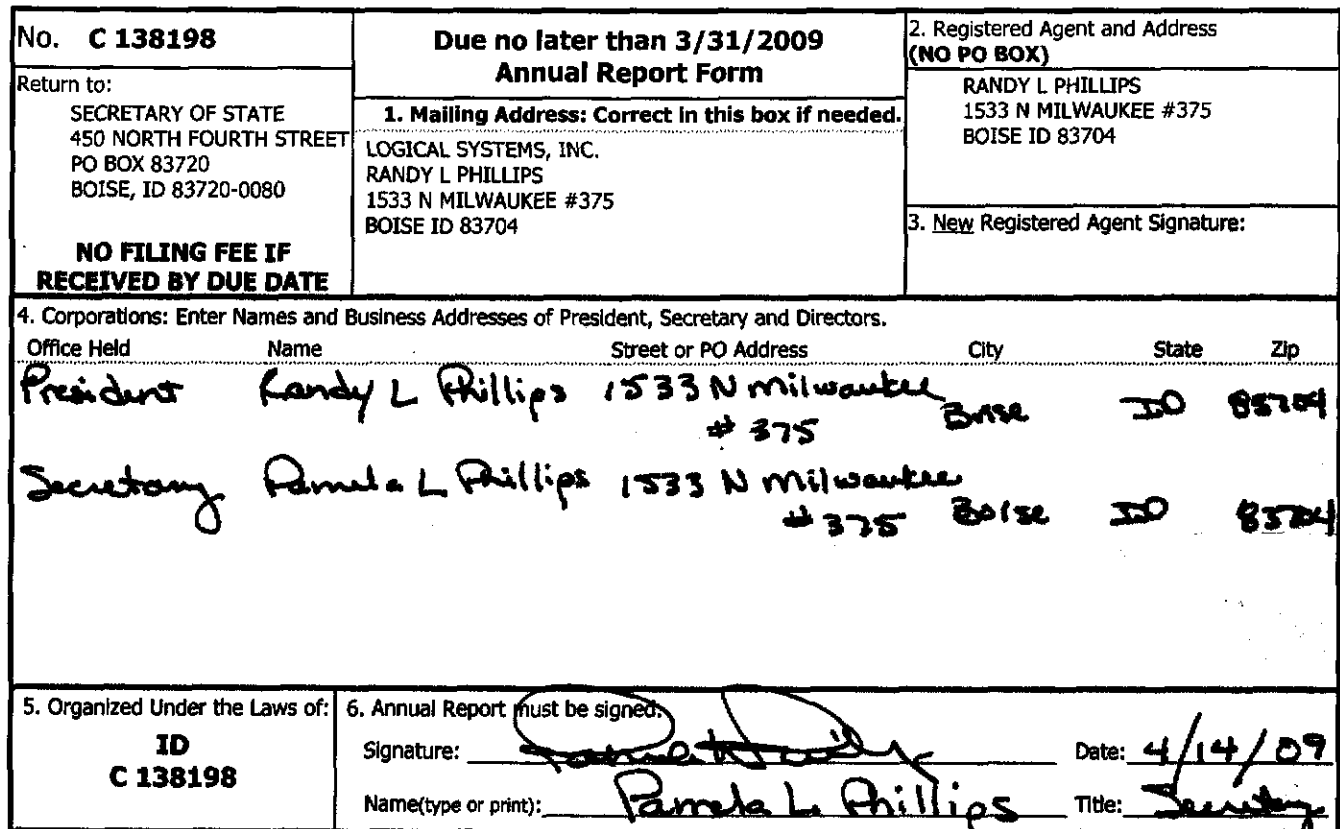 No. C 138198
Return to:
SECRETARY OF STATE
450 NORTH FOURTH STREET
PO BOX 83720
BOISE, ID 83720-0080
NO FILING FEE IF
RECEIVED BY DUE DATE
Due no later than 3/31/2009
Annual Report Form
1. Mailing Address: Correct in this box if needed.
LOGICAL SYSTEMS, INC.
RANDY L PHILLIPS
1533 N MILWAUKEE #375
BOISE ID 83704
2. Registered Agent and Address
(NO PO BOX)
RANDY L PHILLIPS
1533 N MILWAUKEE #375
BOISE ID 83704
3. New Registered Agent Signature:
4. Corporations: Enter Names and Business Addresses of President, Secretary and Directors.
Office Held Name Street or PO Address City State Zip
President Randy L Phillips 1533 N Milwaukee
#375 Boise ID 83704
Secretary Pamela L Phillips 1533 N Milwaukee
#375 Boise ID 83704
5. Organized Under the Laws of:
ID
C 138198
6. Annual Report must be signed.
Signature: Date: 4/14/09
Name(type or print): Pamela L Phillips Title: Secretary